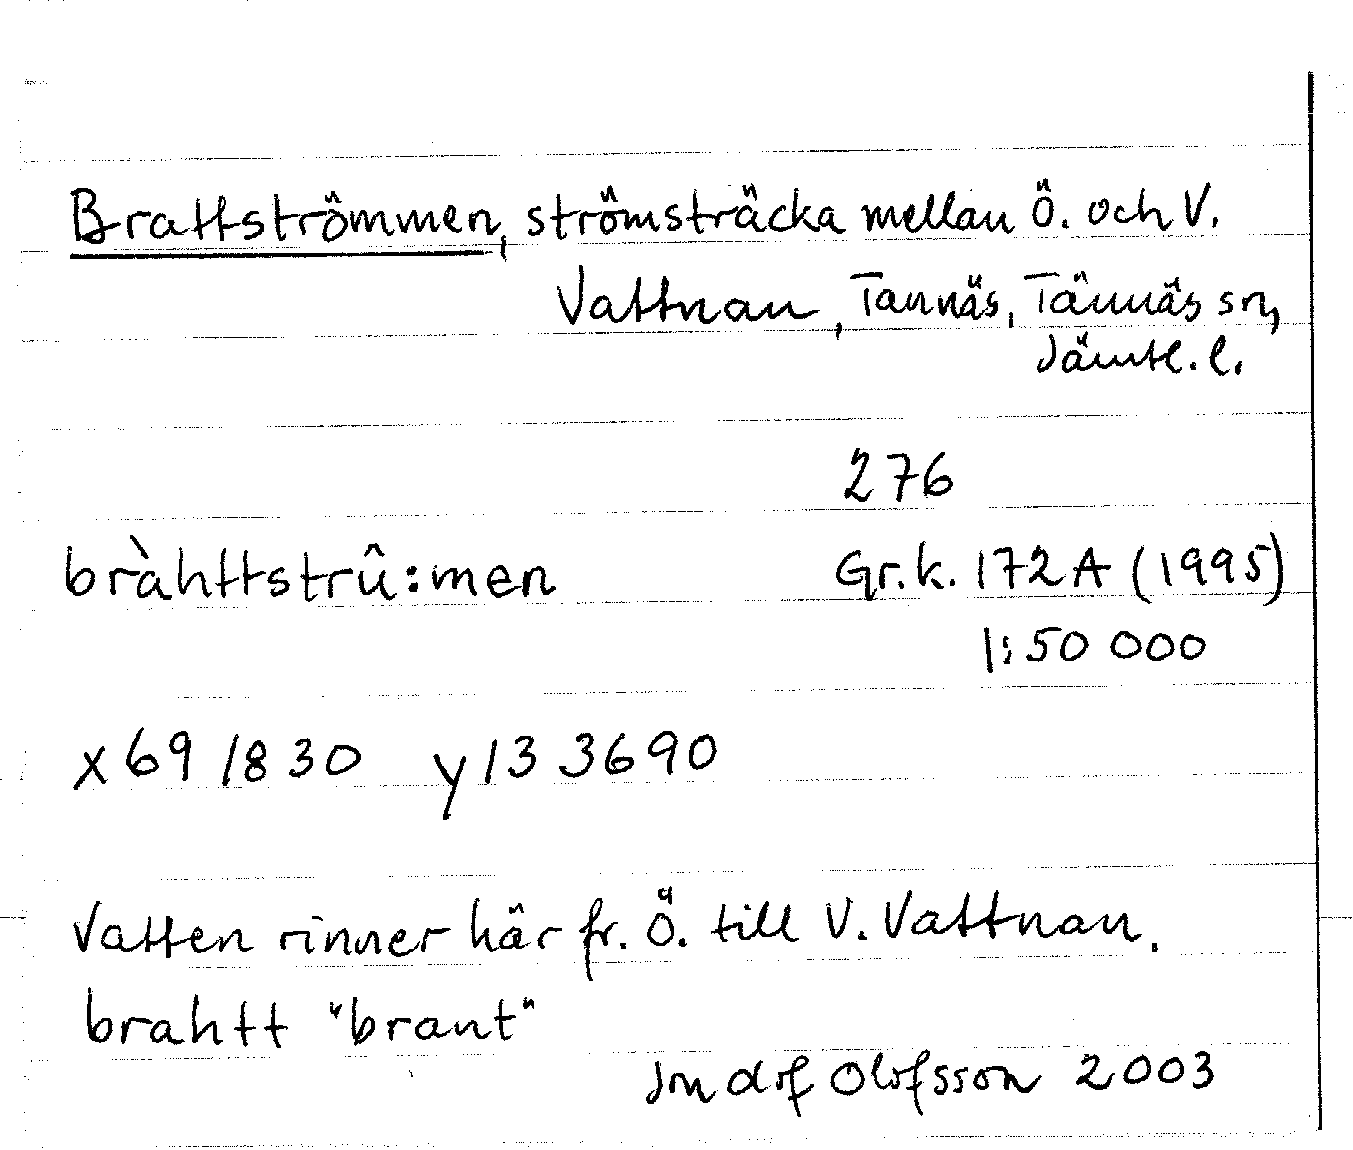 Brattströmmen, strömsträcka mellan Ö. och V.
Vattnan, Tannäs, Tännäs sn,
Jämtl. l.
276
bràhttstrû:men Gr.k. 172A (1995)
1:50 000
x 691830 y 133690
Vatten rinner här fr. Ö. till V. Vattnan.
brahtt "brant"
Olofsson 2003